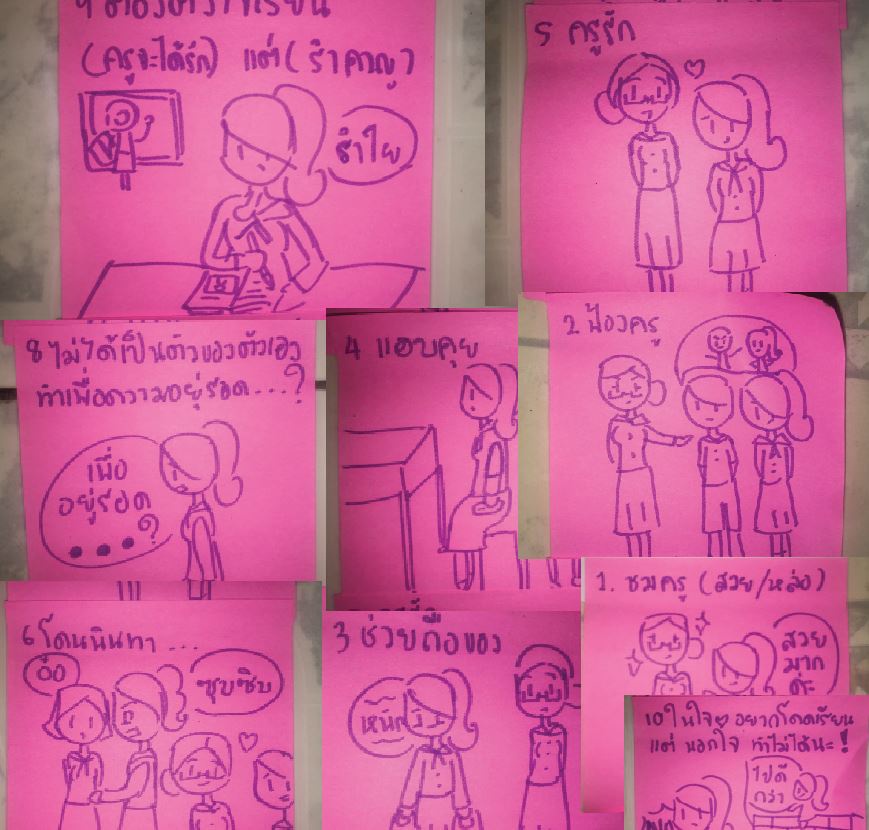 (ครูจะได้รัก) แต่ ( รำคาญ )
รำไย
5 ครูรัก
8 ไม่ได้เป็นตัวของตัวเอง
ทำเพื่อความอยู่รอด...?
เพื่อ
อยู่รอด
...?
4 แอบคุย
2 ฟ้องครู
6 โดนนินทา ...
ซุบซิบ
3 ช่วยถือของ
1. ชมครู (สวย/หล่อ)
สวย
มาก
ค่ะ
10 ในใจ อยากโดดเรียน
แต่ นอกใจ ทำไม่ได้นะ!
ไปดี
กว่า